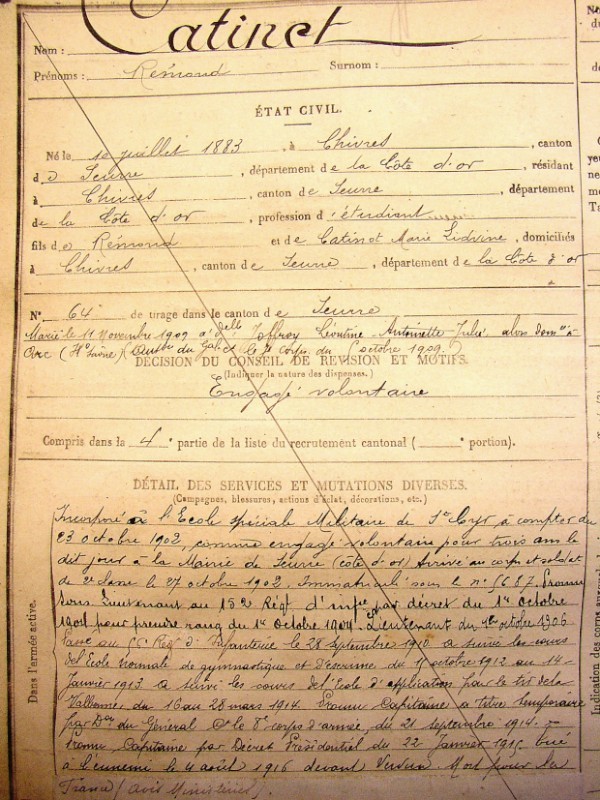 Catinet
Nom :
Prénoms : Rémond Surnom :
ÉTAT CIVIL.
Né le 10 juillet 1883, à Chivres, canton
de Seurre, département de la Côte d'or, résidant
à Chivres, canton de Seurre, département
de la Côte d'or, profession d'étudiant
fils de Rémond et de Catinot Marie Lidvine, domiciliés
à Chivres, canton de Seurre, département de la Côte d'or
N° 64 de tirage dans le canton de Seurre
Marié le 11 Novembre 1909 à delle Joffroy Léontine-Antoinette-Julie alors domée à
Arc (Hte Saône) (Auton du Gal Ct le 8e Corps du octobre 1909.)
DÉCISION DU CONSEIL DE RÉVISION ET MOTIFS.
(Indiquer la nature des dispenses.)
Engagé volontaire
Compris dans la 4e partie de la liste du recrutement cantonal ( e portion).
DÉTAIL DES SERVICES ET MUTATIONS DIVERSES.
(Campagnes, blessures, actions d'éclat, décorations, etc.)
Dans l'armée active.
Incorporé à l'Ecole spéciale Militaire de St Cyr à compter du
23 octobre 1902, comme engagé volontaire pour trois ans le
dit jour à la Mairie de Seurre (côte d'or) Arrivé au corps et soldat
de 2e classe le 27 octobre 1902. Immatriculé sous le n° 5687. Promu
Sous Lieutenant au 152 Régt d'infie par décret du 1er Octobre
1904 pour prendre rang du 1er Octobre 1904. Lieutenant du 1er octobre 1906
Passé au 55 Rég d'Infanterie le 28 Septembre 1910 a suivi les cours
de l'Ecole Normale de gymnastique et d'Escrime du octobre 1912 au 14
Janvier 1913 a suivi les cours de l'Ecole d'application pour le tir de la
Valbonne, du 16 au 28 mars 1914. Promu Capitaine à titre temporaire
par Don du Général Ct le 8e corps d'armée, du 21 septembre 1914.
Promu Capitaine par Décret Présidentiel du 22 Janvier 1915 tué
à l'ennemi le 4 août 1916 devant Verdun Mort pour la
France (avis Ministériel).